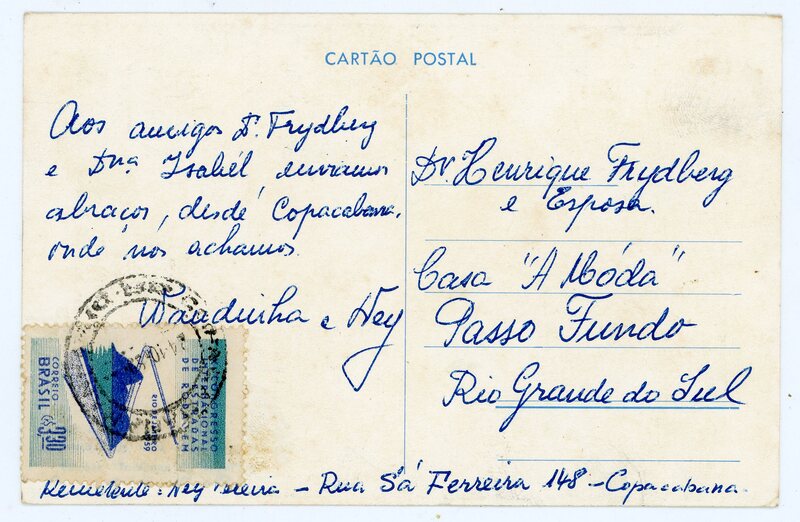 CARTÃO POSTAL
Aos amigos D. Frydberg
e Dna Isabél, enviamos
abraços, desde Copacabana,
onde nos achamos.
Wandinha e Ney
Dr. Henrique Frydberg
e Esposa.
Casa "A Móda"
Passo Fundo
Rio Grande do Sul
CORREIO
BRASIL Cr$ 3,30
CONGRESSO
INTERNACIONAL
DE ESTRADAS
DE RODAGEM
RIO DE JANEIRO
Remetente: Ney Pereira - Rua Sá Ferreira 148 - Copacabana.